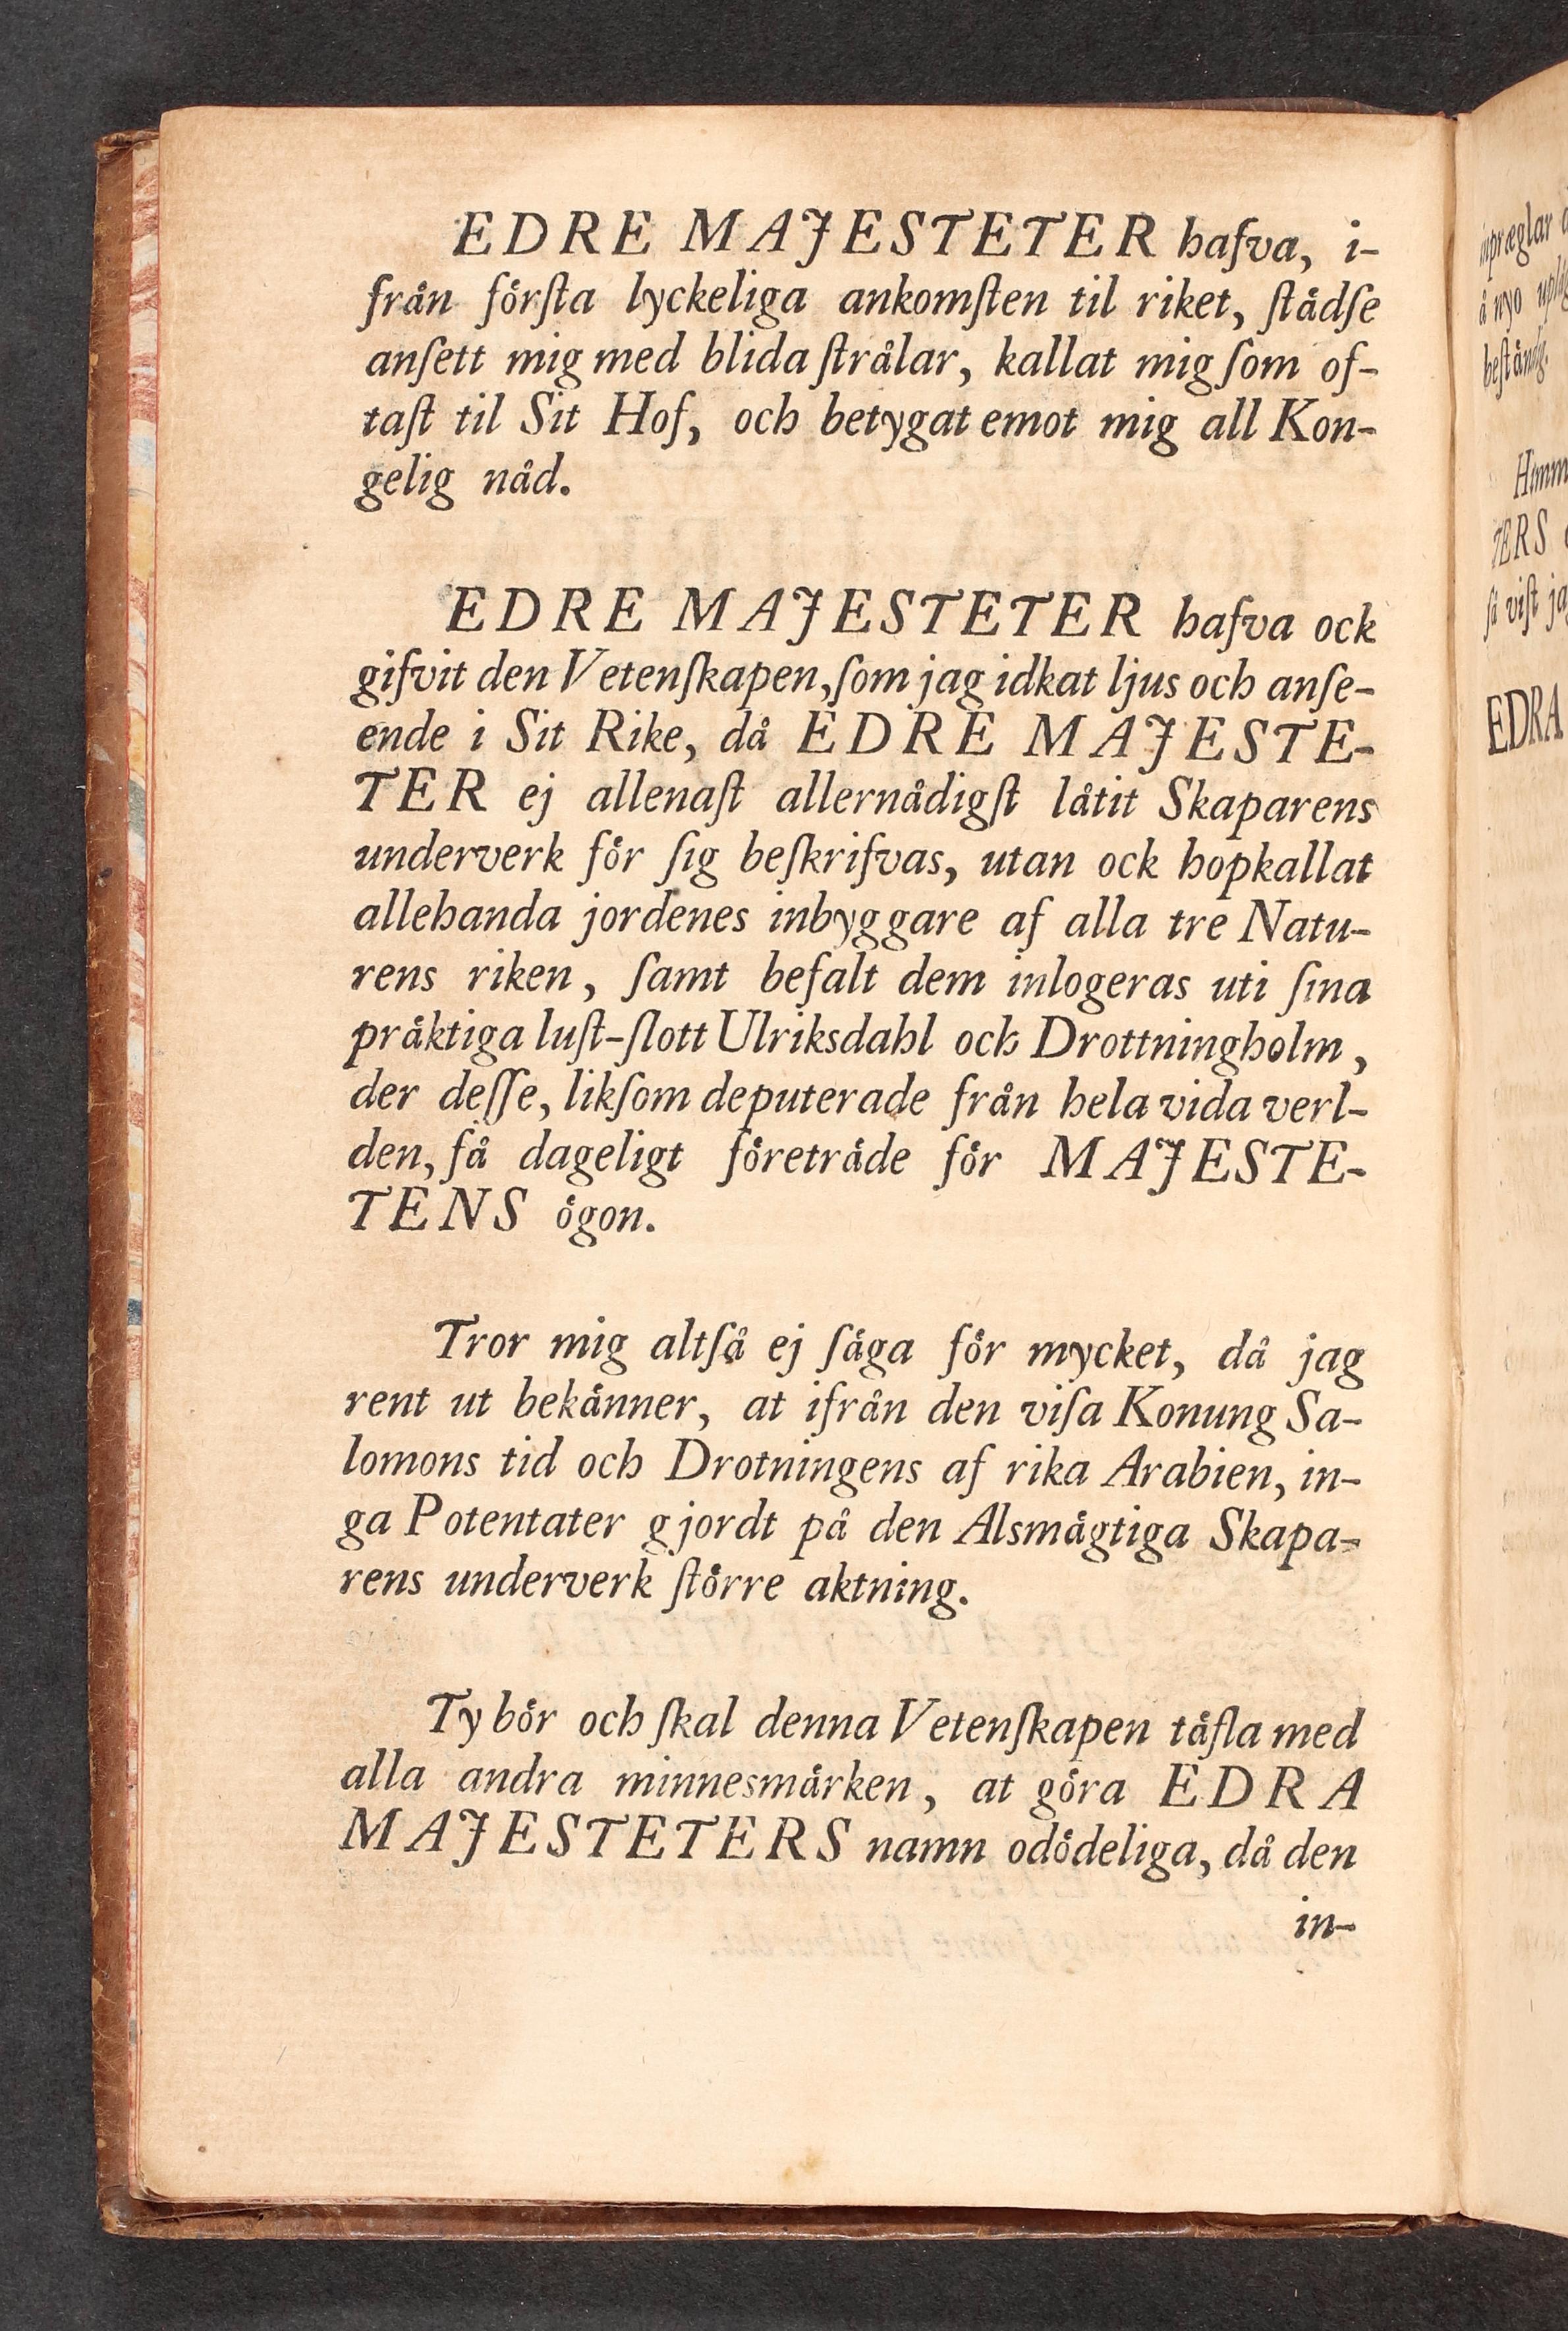 EDRE MAJESTETER hafva, i-
från förſta lyckeliga ankomſten til riket, ſtädſe
anſett mig med blida ſtrålar, kallat mig ſom of-
taſt til Sit Hof, och betygat emot mig all Kon-
gelig nåd.
EDRE MAJESTETER hafva ock
gifvit den Vetenſkapen, ſom jag idkat ljus och anſe-
ende i Sit Rike, då EDRE MAJESTE-
TER ej allenaſt allernådigſt låtit Skaparens
underverk för ſig beſkrifvas, utan ock hopkallat
allehanda jordenes inbyggare af alla tre Natu-
rens riken, ſamt befalt dem inlogeras uti ſina
präktiga luſt-ſlott Ulriksdahl och Drottningholm,
der deſſe, likſom deputerade från hela vida verl-
den, få dageligt företräde för MAJESTE-
TENS ögon.
Tror mig altſå ej ſäga för mycket, då jag
rent ut bekänner, at ifrån den viſa Konung Sa-
lomons tid och Drotningens af rika Arabien, in-
ga Potentater gjordt på den Alsmägtiga Skapa-
rens underverk ſtörre aktning.
Ty bör och ſkal denna Vetenſkapen täfla med
alla andra minnesmärken, at göra EDRA
MAJESTETERS namn odödeliga, då den
in-
inpræglar
å nyo
beſtändig.
TERS
ſå viſt
EDRA